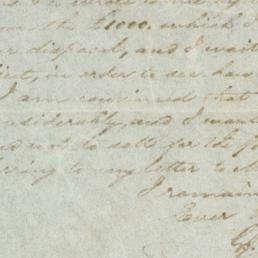 the £1000. which I
disposal, and I wait
in order to see how
I am convinced that
considerably, and I want
not to sell for the
my letter to
I remain
Ever